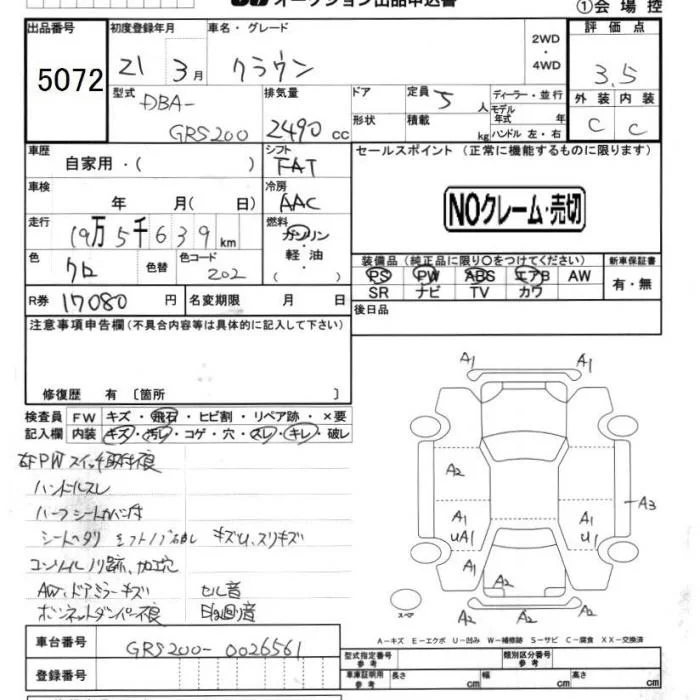 オークション出品申込書
①会場控
出品番号 初度登録年月 車名・グレード 評価点
5072 21 3月 クラウン 2WD・4WD 3.5
型式 DBA-GRS200 排気量 2490 cc ドア 形状 定員 5人 積載 kg ディーラー・並行 モデル年式 年 ハンドル 左・右 外装 C 内装 C
車歴 自家用・( ) シフト FAT セールスポイント (正常に機能するものに限ります)
車検 年 月( 日) 冷房 AAC
NOクレーム・売切
走行 19万5千639km 燃料 ガソリン 軽油 ( )
色 クロ 色替 色コード 202
装備品 (純正品に限り○をつけてください) 新車保証書
PS PW ABS エアB AW 有・無
SR ナビ TV カワ
R券 17080円 名変期限 月 日 後日品
注意事項申告欄 (不具合内容等は具体的に記入して下さい)
修復歴 有 [箇所 ]
検査員 FW キズ・飛石・ヒビ割・リペア跡・×要
記入欄 内装 キズ・汚レ・コゲ・穴・スレ・キレ・破レ
ハンドルスレ
ハーフシートカバー付
シートヘタリ シフトノブ キズU、スリキズ
コンソイルノリ跡、加工穴
AW、ドアミラーキズ セル音
ボンネットダンパー不良 E/g回り音
A1 A1
A2 A3
A1 UA1 A1 U1
A2 A2
A2 A2 A2
スペア
A−キズ E−エクボ U−凹み W−補修跡 S−サビ C−腐食 XX−交換済
車台番号 GRS200-0026561
型式指定番号 参考 類別区分番号 参考
登録番号 車庫証明用 参考 長さ cm 幅 cm 高さ cm